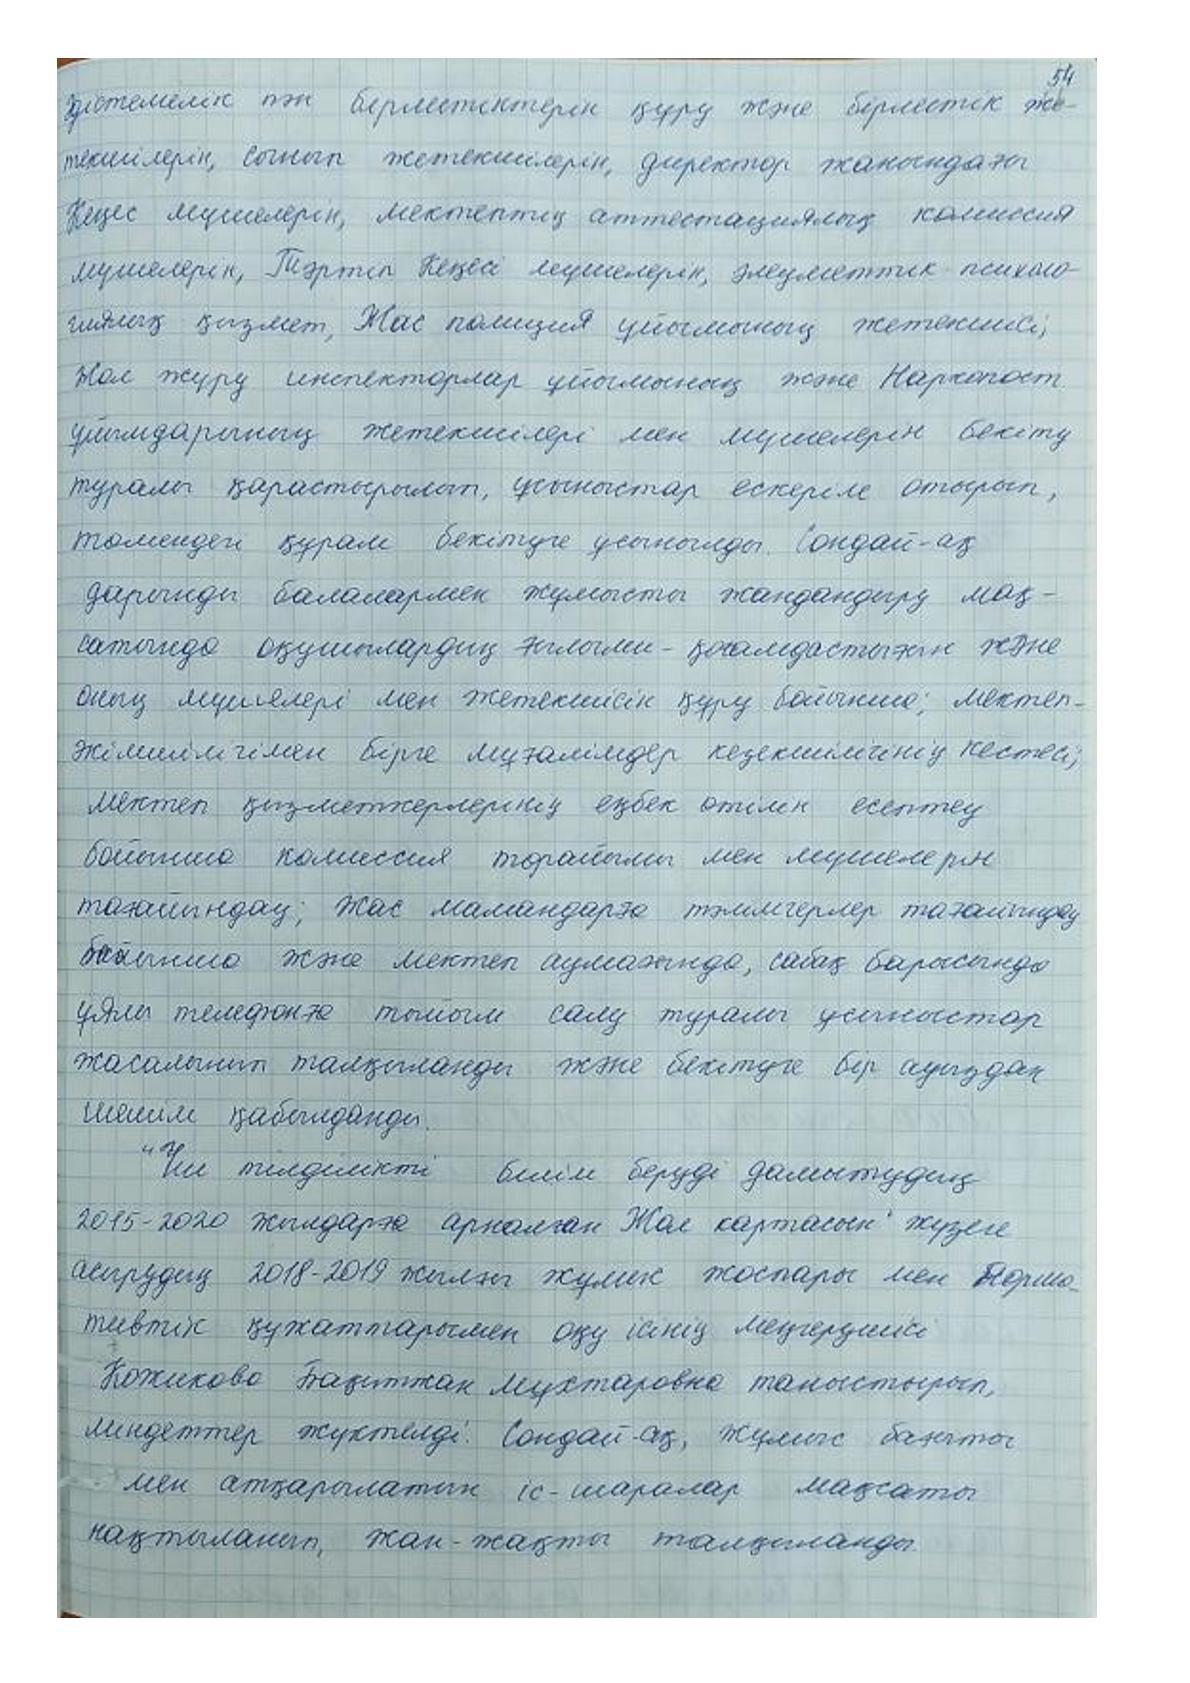 54
әдістемелік пән бірлестіктерін құру және бірлестік же-
текшілерін, сынып жетекшілерін, директор жанындағы
Кеңес мүшелерін, мектептің аттестациялық комиссия
мүшелерін, Тәртіп Кеңесі мүшелерін, әлеуметтік психоло-
гиялық қызмет, Жас полиция ұйымының жетекшісі,
Жол жүру инспекторлар ұйымының және Наркопост
ұйымдарының жетекшілері мен мүшелерін бекіту
туралы қарастырылып, ұсыныстар ескеріле отырып,
төмендегі құрам бекітуге ұсынылды. Сондай-ақ
дарынды балалармен жұмысты жандандыру мақ-
сатында оқушылардың ғылыми-қоғамдастығын және
оның мүшелері мен жетекшісін құру бойынша; мектеп-
әкімшілігімен бірге мұғалімдер кезекшілігінің кестесі;
мектеп қызметкерлерінің еңбек өтілін есептеу
бойынша комиссия төрайымы мен мүшелерін
тағайындау; Жас мамандарға тәлімгерлер тағайындау
бойынша және мектеп аумағында, сабақ барысында
ұялы телефонға тыйым салу туралы ұсыныстар
жасалынып талқыланды және бекітуге бір ауыздан
шешім қабылданды.
"Үш тілділікті білім беруді дамытудың
2015-2020 жылдарға арналған Жол картасын" жүзеге
асырудың 2018-2019 жылғы жұмыс жоспары мен Норма-
тивтік құжаттарымен оқу ісінің меңгерушісі
Кожикова Бақытжан Мухтаровна таныстырып,
міндеттер жүктелді. Сондай-ақ, жұмыс бағыты
мен атқарылатын іс-шаралар мақсаты
нақтыланып, жан-жақты талқыланды.